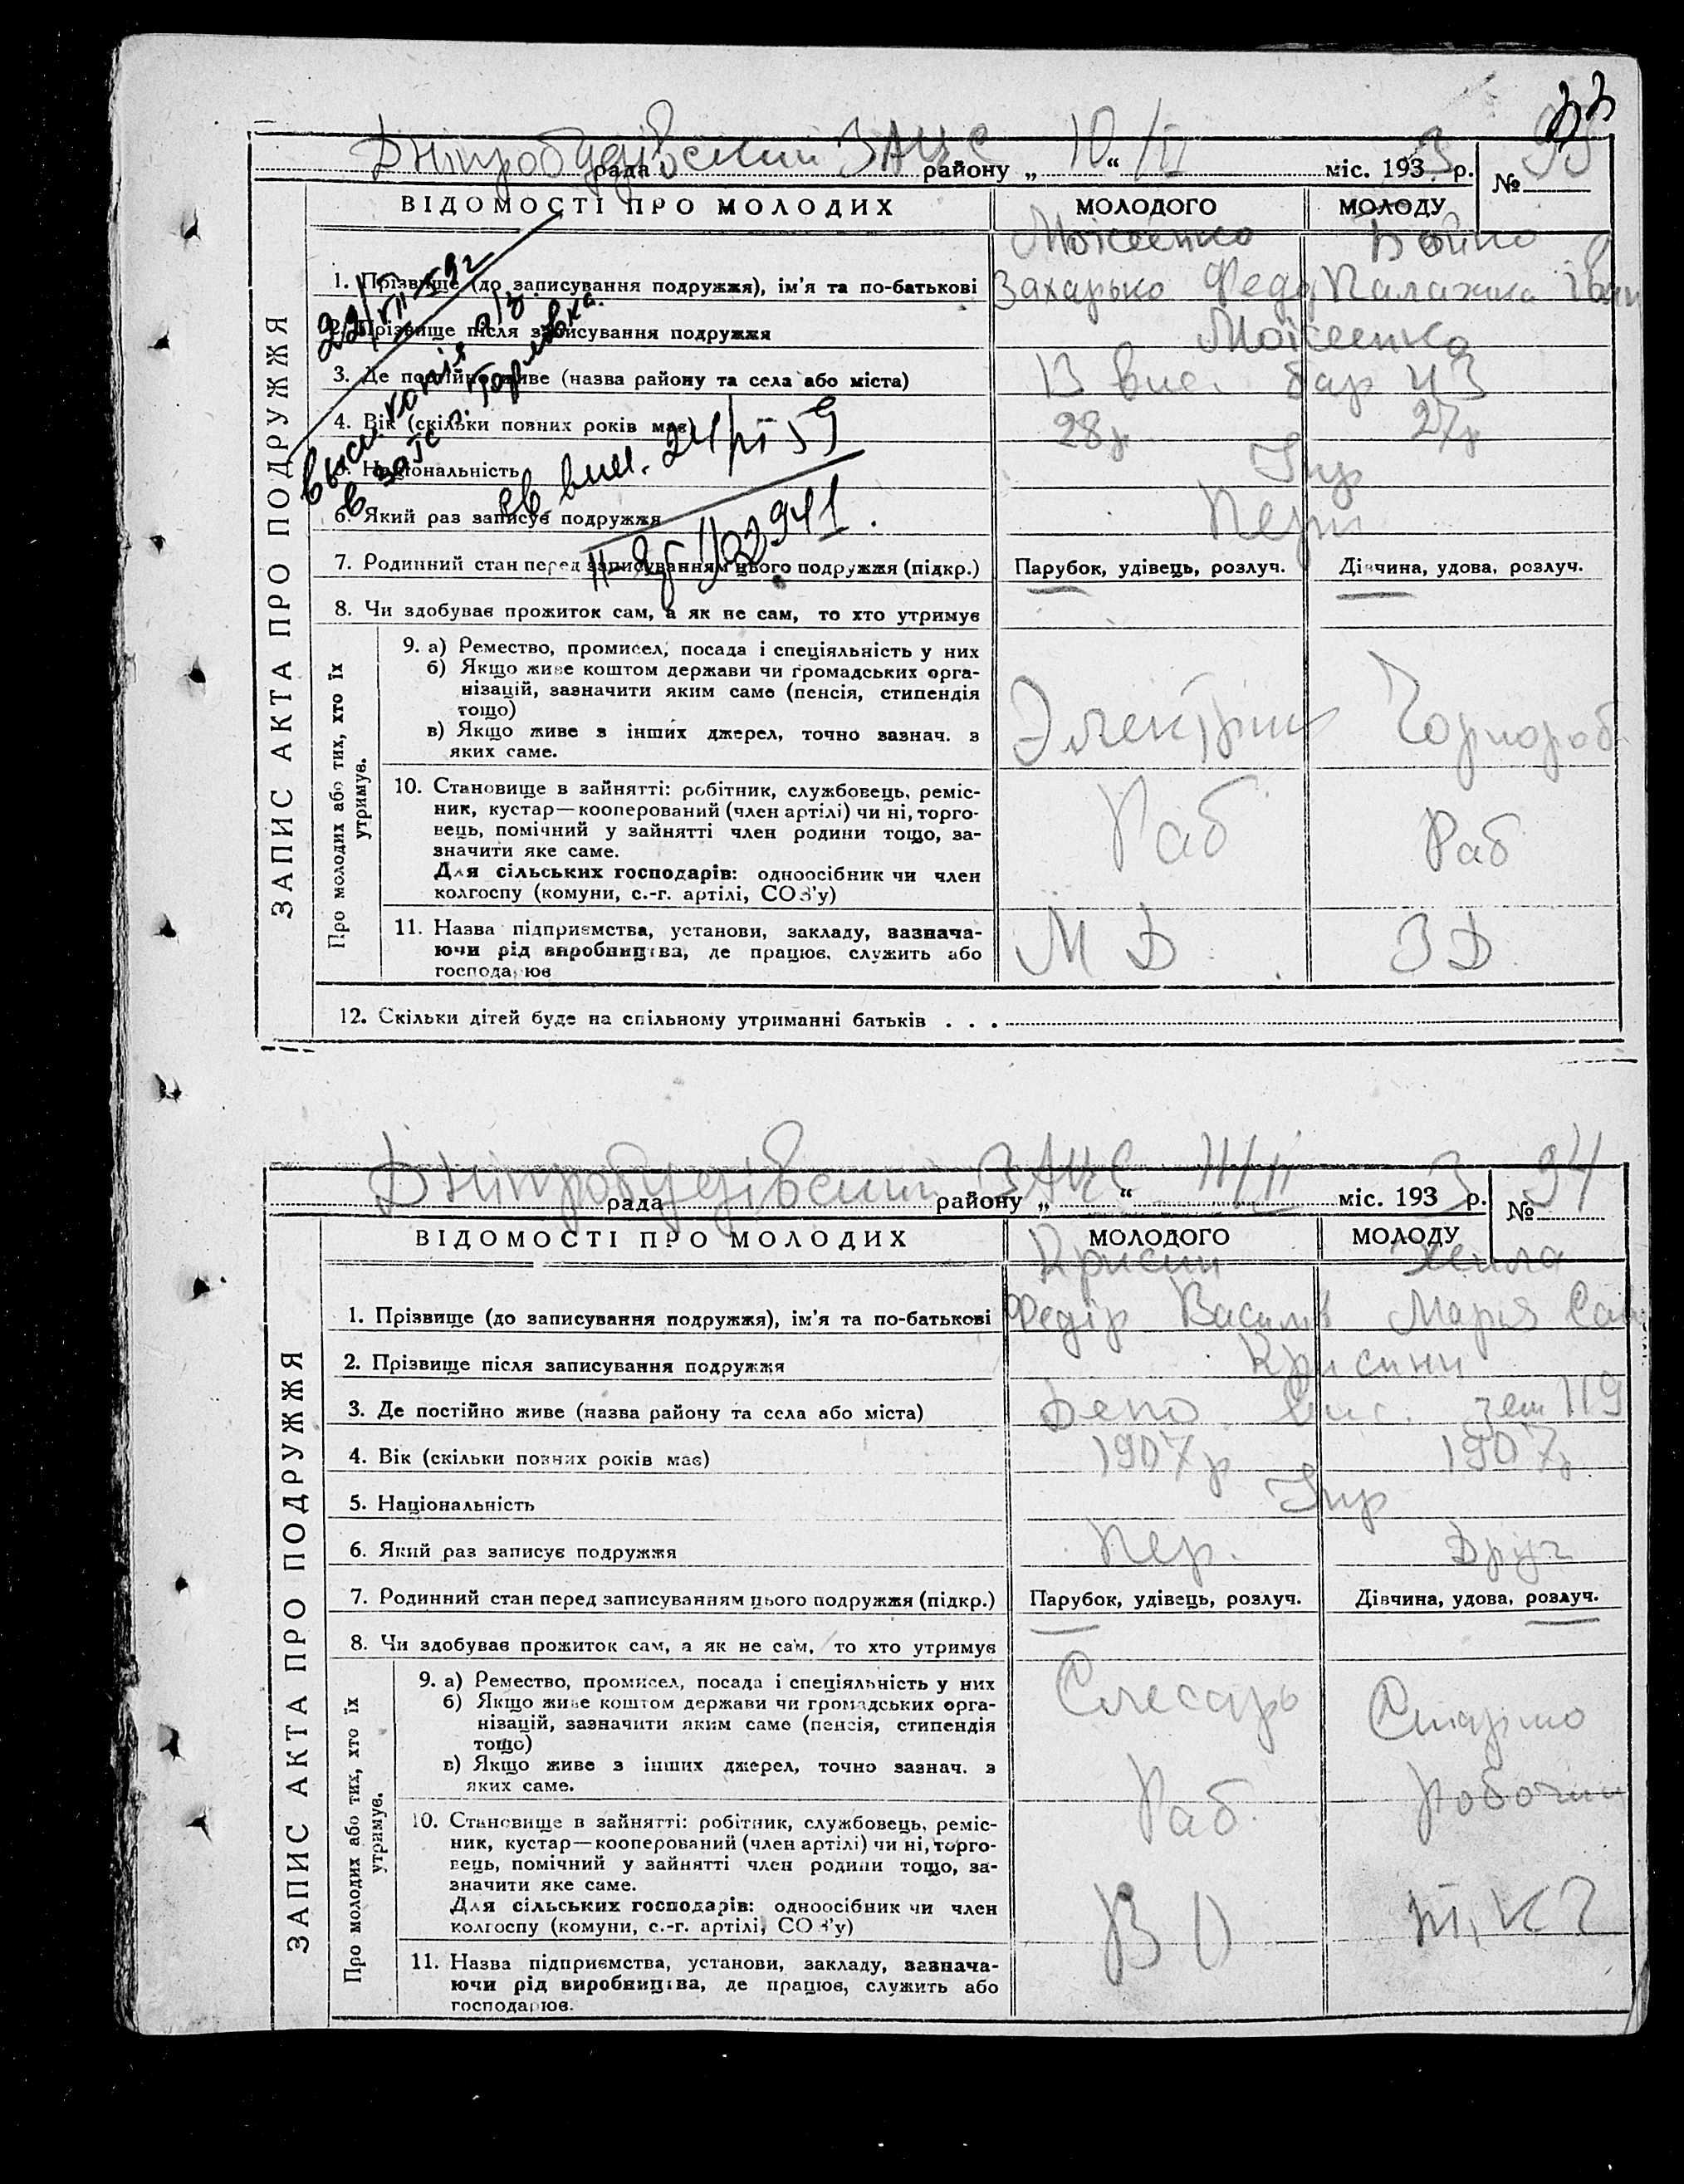 33
Дніпробудівський ЗАЦС 10/II 3 93
рада району „ “ міс. 193 р. №
ЗАПИС АКТА ПРО ПОДРУЖЖЯ
ВІДОМОСТІ ПРО МОЛОДИХ МОЛОДОГО МОЛОДУ
Моісеенко
1. Прізвище (до записування подружжя), ім'я та по-батькові Захарько Федо Палажка Іван
2. Прізвище після записування подружжя Моісеенко
3. Де постійно живе (назва району та села або міста) В вис. бар 43
4. Вік (скільки повних років має) 28р 27р
5. Національність Укр
6. Який раз записує подружжя Перш
7. Родинний стан перед записуванням цього подружжя (підкр.) Парубок, удівець, розлуч. Дівчина, удова, розлуч.
8. Чи здобуває прожиток сам, а як не сам, то хто утримує
Про молодих або тих, хто їх утримує.
9. а) Ремество, промисел, посада і спеціяльність у них
б) Якщо живе коштом держави чи громадських орга-
нізацій, зазначити яким саме (пенсія, стипендія
тощо)
в) Якщо живе з інших джерел, точно зазнач. з
яких саме.
Электрик Чорнороб.
10. Становище в зайнятті: робітник, службовець, реміс-
ник, кустар—кооперований (член артілі) чи ні, торго-
вець, помічний у зайнятті член родини тощо, за-
значити яке саме.
Для сільських господарів: одноосібник чи член
колгоспу (комуни, с.-г. артілі, СОЗ'у)
Раб Раб
11. Назва підприємства, установи, закладу, зазнача-
ючи рід виробництва, де працює, служить або
господарює
М Д ЗД
12. Скільки дітей буде на спільному утриманні батьків . . .
22/VII-59г
высл. копія а/з
в загс г. Горловка.
св. выс. 24/VII 59
II-ЯБ 422941.
Дніпробудівський ЗАЦС 11/II 3 94
рада району „ “ міс. 193 р. №
ЗАПИС АКТА ПРО ПОДРУЖЖЯ
ВІДОМОСТІ ПРО МОЛОДИХ МОЛОДОГО МОЛОДУ
1. Прізвище (до записування подружжя), ім'я та по-батькові Федір Василів Марья
2. Прізвище після записування подружжя
3. Де постійно живе (назва району та села або міста) Депо Вис. зем 119
4. Вік (скільки повних років має) 1907р 1907р
5. Національність Укр
6. Який раз записує подружжя Пер. Друг
7. Родинний стан перед записуванням цього подружжя (підкр.) Парубок, удівець, розлуч. Дівчина, удова, розлуч.
8. Чи здобуває прожиток сам, а як не сам, то хто утримує
Про молодих або тих, хто їх утримує.
9. а) Ремество, промисел, посада і спеціяльність у них
б) Якщо живе коштом держави чи громадських орга-
нізацій, зазначити яким саме (пенсія, стипендія
тощо)
в) Якщо живе з інших джерел, точно зазнач. з
яких саме.
Слесарь
10. Становище в зайнятті: робітник, службовець, реміс-
ник, кустар—кооперований (член артілі) чи ні, торго-
вець, помічний у зайнятті член родини тощо, за-
значити яке саме.
Для сільських господарів: одноосібник чи член
колгоспу (комуни, с.-г. артілі, СОЗ'у)
Раб.
11. Назва підприємства, установи, закладу, зазнача-
ючи рід виробництва, де працює, служить або
господарює.
ВО